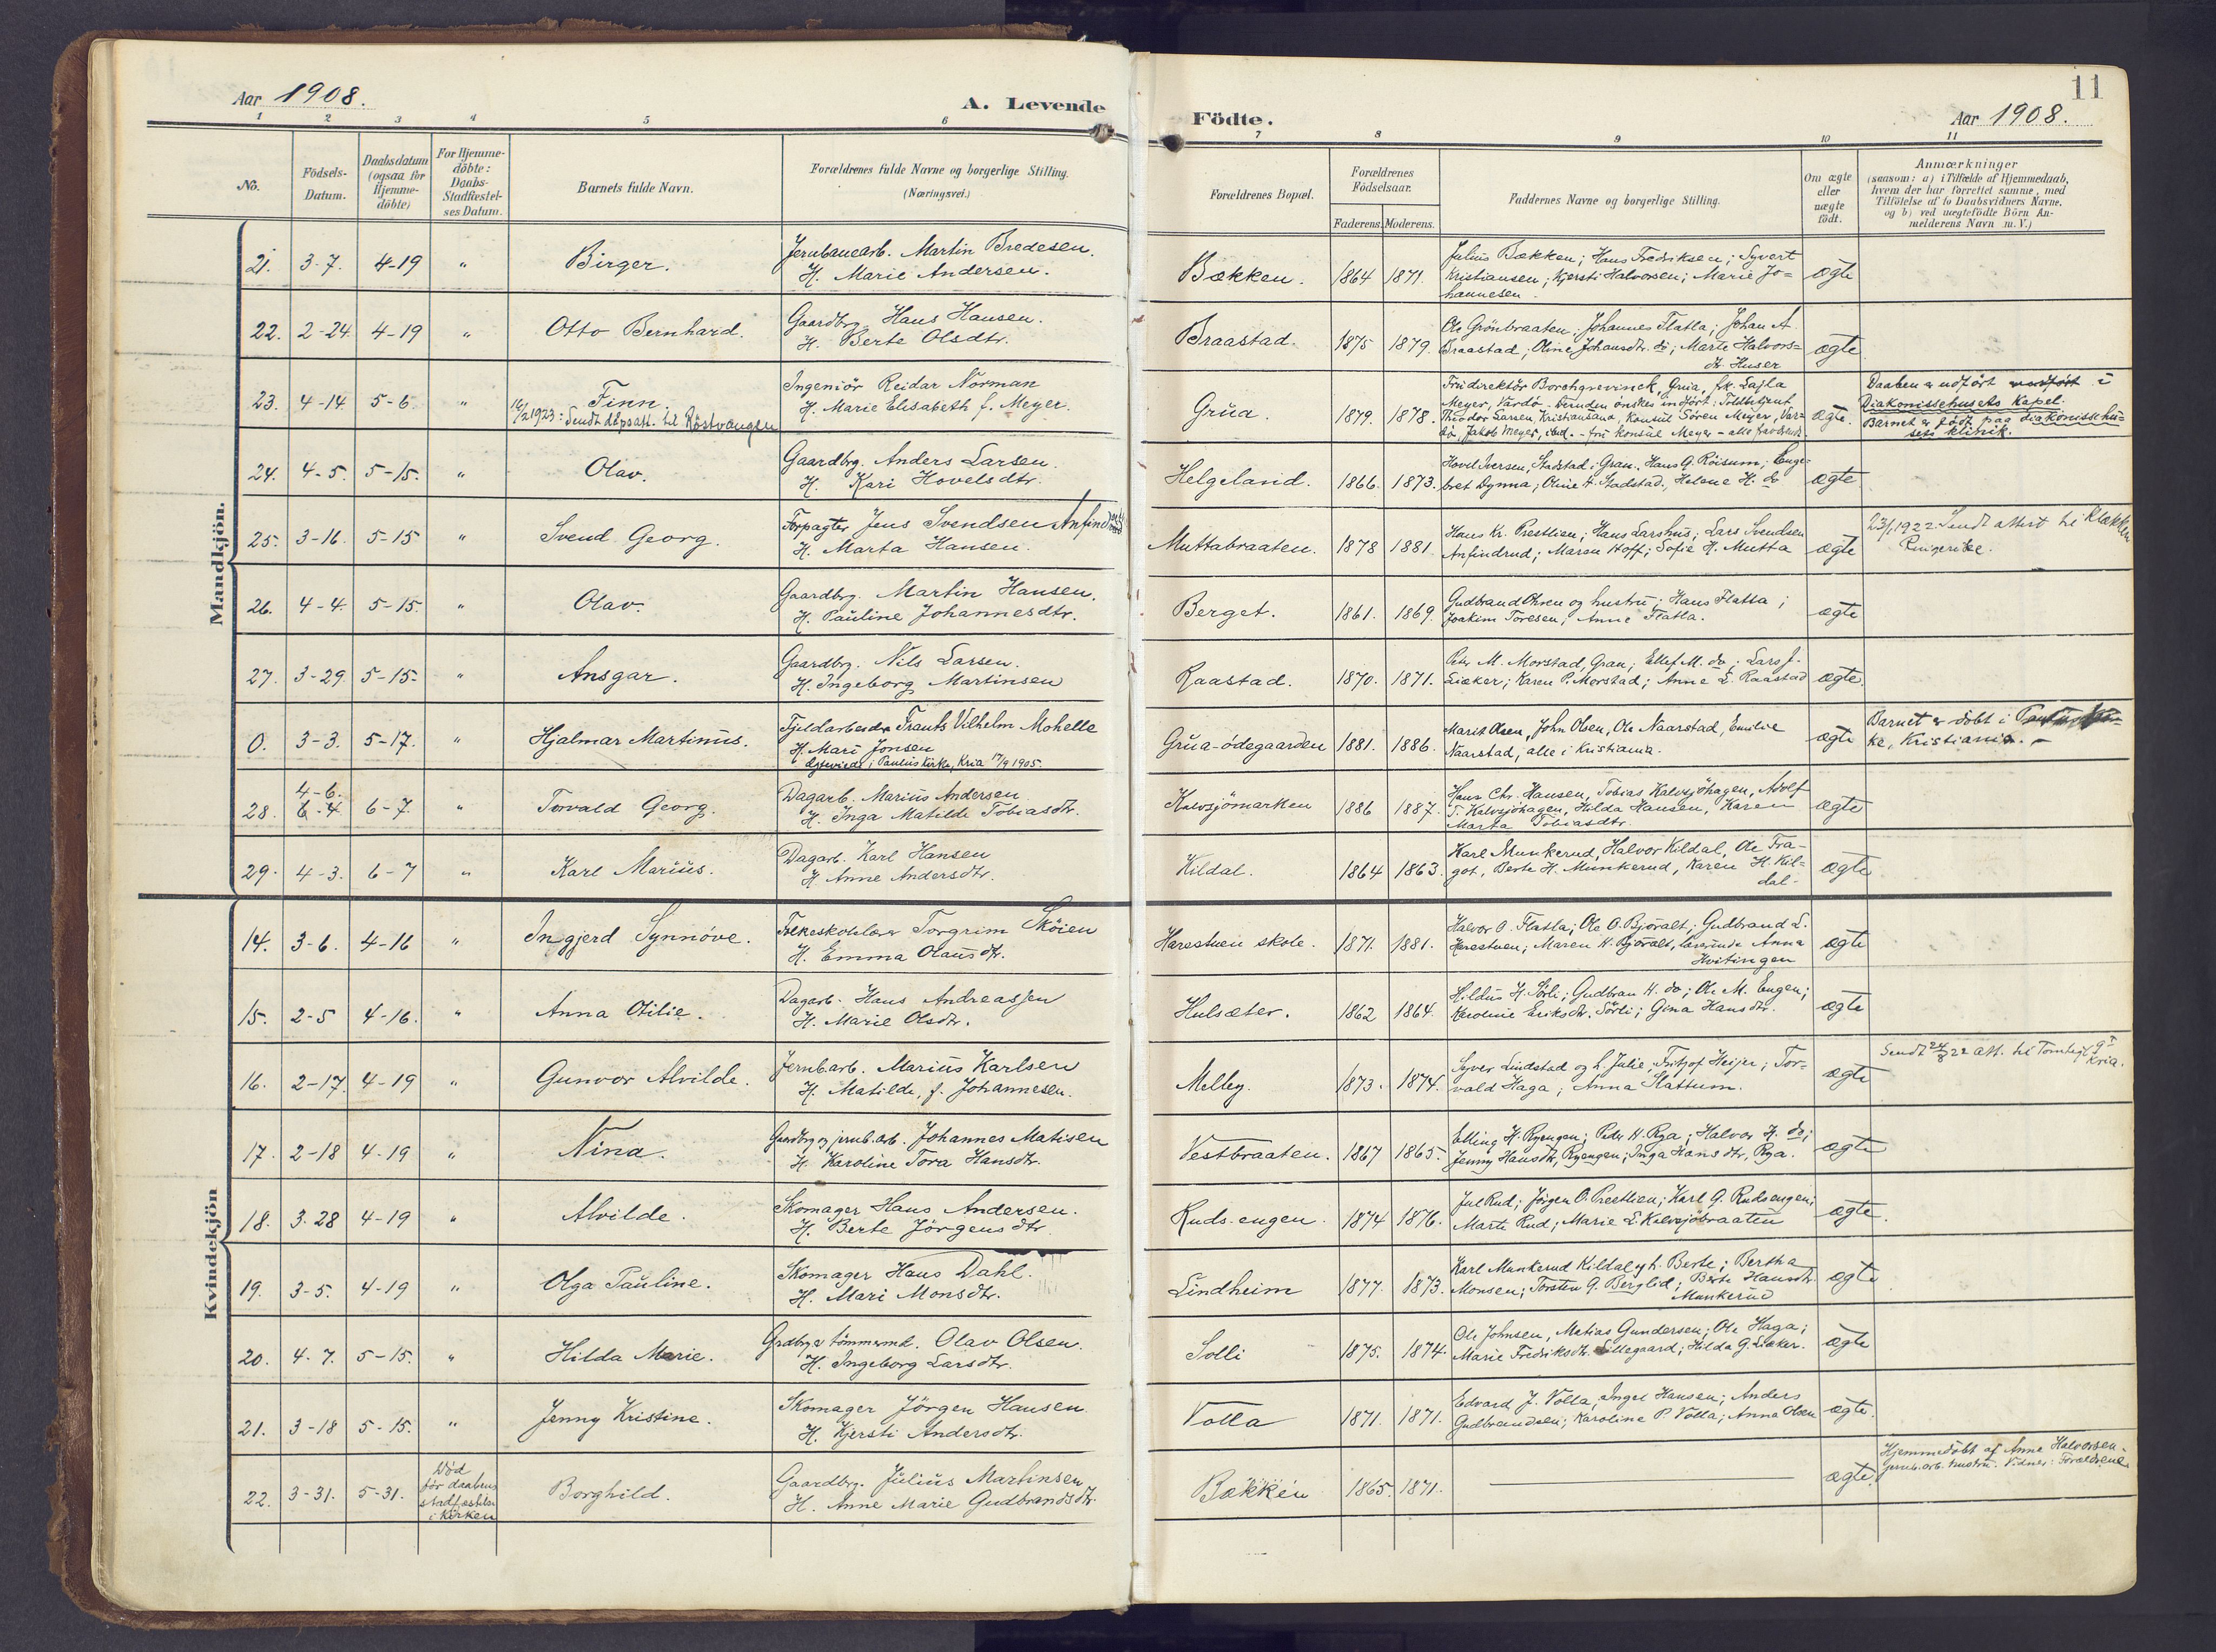 Aar 1908.
A. Levende
1 2 3 4 5 6
No.
Födsels-
Datum.
Daabsdatum
(ogsaa for
Hjemme-
döbte)
For Hjemme-
döbte:
Daabs-
Stadfæstel-
ses Datum.
Barnets fulde Navn.
Forældrenes fulde Navne og borgerlige Stilling.
(Næringsvei.)
Mandkjön.
21. 3-7. 4-19 " Birger. Jernbanearb. Martin Bredesen.
H. Marie Andersen.
22. 2-24 4-19 " Otto Bernhard. Gaardbrg. Hans Hansen.
H. Berte Olsdtr.
23. 4-14. 5-6 " Finn. Ingeniör Reidar Norman
16/2 1923: Sendt dåpsatt. til Röstvangen H. Marie Elisabeth f. Meyer.
24. 4-5. 5-15. " Olav. Gaardbrg. Anders Larsen.
H. Kari Hovelsdtr.
25. 3-16. 5-15 " Svend Georg. Forpagter Jens Svendsen
H. Marta Hansen.
26. 4-4. 5-15. " Olav. Gaardbrg. Martin Hansen.
H. Pauline Johannesdtr.
27. 3-29. 5-15. " Ansgar. Gaardbrg. Nils Larsen.
H. Ingeborg Martinsen
0. 3-3. 5-17. " Hjalmar Martinus. Fjeldarbeider Frants Vilhelm Mohelle
H. Mari Jonsen
Egteviede i Paulus Kirke, Kria 17/9 1905.
28. 4-6. 6-7. " Torvald Georg. Dagarb. Marius Andersen
H. Inga Matilde Tobiasdtr.
29. 4-3. 6-7 " Karl Marius. Dagarb. Karl Hansen
H. Anne Andersdtr.
Kvindekjön
14. 3-6. 4-16 " Ingjerd Synnöve. Folkeskolelærer Torgrim Sköien
H. Emma Olausdtr.
15. 2-5 4-16. " Anna Otilie. Dagarb. Hans Andreassen
H. Marie Olsdtr.
16. 2-17. 4-19 " Gunvor Alvilde. Jernb.arb. Marius Karlsen
H. Matilde, f. Johannesen.
17. 2-18 4-19 " Nina. Gaardbrg og jernb.arb. Johannes Matisen
H. Karoline Tora Hansdtr.
18. 3.28 4-19 " Alvilde. Skomager Hans Andersen.
H. Berte Jörgensdtr
19. 3-5. 4-19 " Olga Pauline. Skomager Hans Dahl.
H. Mari Monsdtr.
20. 4.7. 5-15. " Hilda Marie. Olav Olsen.
H. Ingeborg Larsdtr.
21. 3-18 5-15. " Jenny Kristine. Skomager Jörgen Hansen
H. Kjersti Andersdtr.
22. 3-31. 5-31. Död
för daabens
stadfæstelse
i Kirken
Borghild. Gaardbrg. Julius Martinsen
H. Anne Marie Gudbrandsdtr.
11
Födte.
Aar 1908.
7 8 9 10 11
Forældrenes Bopæl.
Forældrenes
Födselsaar.
Faderens. Moderens.
Faddernes Navne og borgerlige Stilling.
Om ægte
eller
uægte
födt.
Anmærkninger
(saasom: a) i Tilfælde af Hjemmedaab,
hvem der har forrettet samme, med
Tilföielse af to Daabsvidners Navne.
og b) ved uægtefödte Börn An-
melderens Navn m. V.)
Bækken. 1864 1871. Julius Bækken; Hans Fredriksen; Syvert
Kristiansen; Kjersti Halvorsen; Marie Jo-
hannesen. ægte
Braastad. 1875 1879. Ole Grönbraaten; Johannes Flatla; Johan A.
Braastad; Oline Johansdtr. do; Marte Halvors=
dtr. Huser ægte
Grua. 1879. 1878. Frudirektör Borchgrevinck, Grua, frk. Lajla
Meyer, Vardö.
Theodor Larsen, Kristiansand, Konsul Sören Meyer, Var-
dö, Jakob Meyer, ibid. - fru konsul Meyer - alle fraværende. ægte.
Daaben er udfört i
Diakonissehusets Kapel.
Barnet er födt paa diakonissehu-
sets klinik.
Helgeland. 1866. 1873. Hovel Iversen, Stadstad i Gran, Hans G. Röisum; Enge-
bret Dynna; Oline H. Stadstad, Helene H. do ægte
Muttabraaten. 1878 1881 Hans Kr. Prestlien; Hans Larshus; Lars Svendsen
Anfindrud; Maren Hoff; Sofie H. Mutta ægte
23/1 1922 Sendt attest til Klækken
Ringerike.
Berget. 1861. 1869. Gudbrand Ohren og hustru; Hans Flatla;
Joakim Toresen; Anne Flatla. ægte
Raastad. 1870. 1871. Peder M. Morstad, Gran; Ellef M. do; Lars J.
Liæker; Karen P. Morstad; Anne L. Raastad ægte
Grua-ödegaarden 1881. 1886. Marit Olsen, John Olsen, Ole Naarstad, Emilie
Naarstad, alle i Kristiania. ægte
Barnet er döbt i
ke, Kristiania.
Kalvsjömarken 1886 1887. Hans Chr. Hansen, Tobias Kalvsjöhagen, Adolf
T. Kalvsjöhagen, Hilda Hansen, Karen
Marta Tobiasdtr. ægte
Kildal. 1864 1863. Karl Munkerud, Halvor Kildal, Ole Fra-
got, Berte H. Munkerud, Karen H. Kil=
dal. ægte
Harestuen skole. 1871. 1881. Halvor O. Flatla; Ole O. Björalt; Gudbrand L.
Harestuen; Maren H. Björalt, lærerinde Anna
Hvitingen ægte
Hulsæter. 1862 1864. Hildus H. Sörli; Gudbran H. do; Ole M. Engen;
Karoline Eriksdtr. Sörli; Gina Hansdtr. ægte
Melby. 1873. 1874. Syver Lindstad og h. Julie, Fritjof Heijer; Tor=
vald Haga; Anna Slattum. ægte
Sendt 24/8 22 att. til Kria.
Vestbraaten. 1867 1865. Elling H. Ryengen; Peder H. Rya; Halvor H. do;
Jenny Hansdtr, Ryengen; Inga Hansdtr, Rya. ægte
Ruds.engen. 1874 1876. Jul Rud; Jörgen O. Prestlien; Karl G. Rudsengen;
Marte Rud; Marie L. Kalvsjöbraaten ægte.
Lindheim 1877. 1873. Karl Munkerud Kildal og h. Berte; Bertha
Monsen; Torsten G. Berglid; Berte Hansdtr.
Munkerud ægte
Solli 1875. 1874. Ole Johnsen, Matias Gundersen; Ole Haga;
Marie Fredriksdtr. Lillegaard; Hilda G. Liæker. ægte
Volla 1871. 1871. Edvard J. Volla, Ingel Hansen; Anders
Gudbrandsen; Karoline P. Volla; Anna Olsen ægte.
Bækken 1865. 1871. ægte.
Hjemmedöbt af Anne Halvorsen
jernb.arb. hustru. Vidner: Forældrene